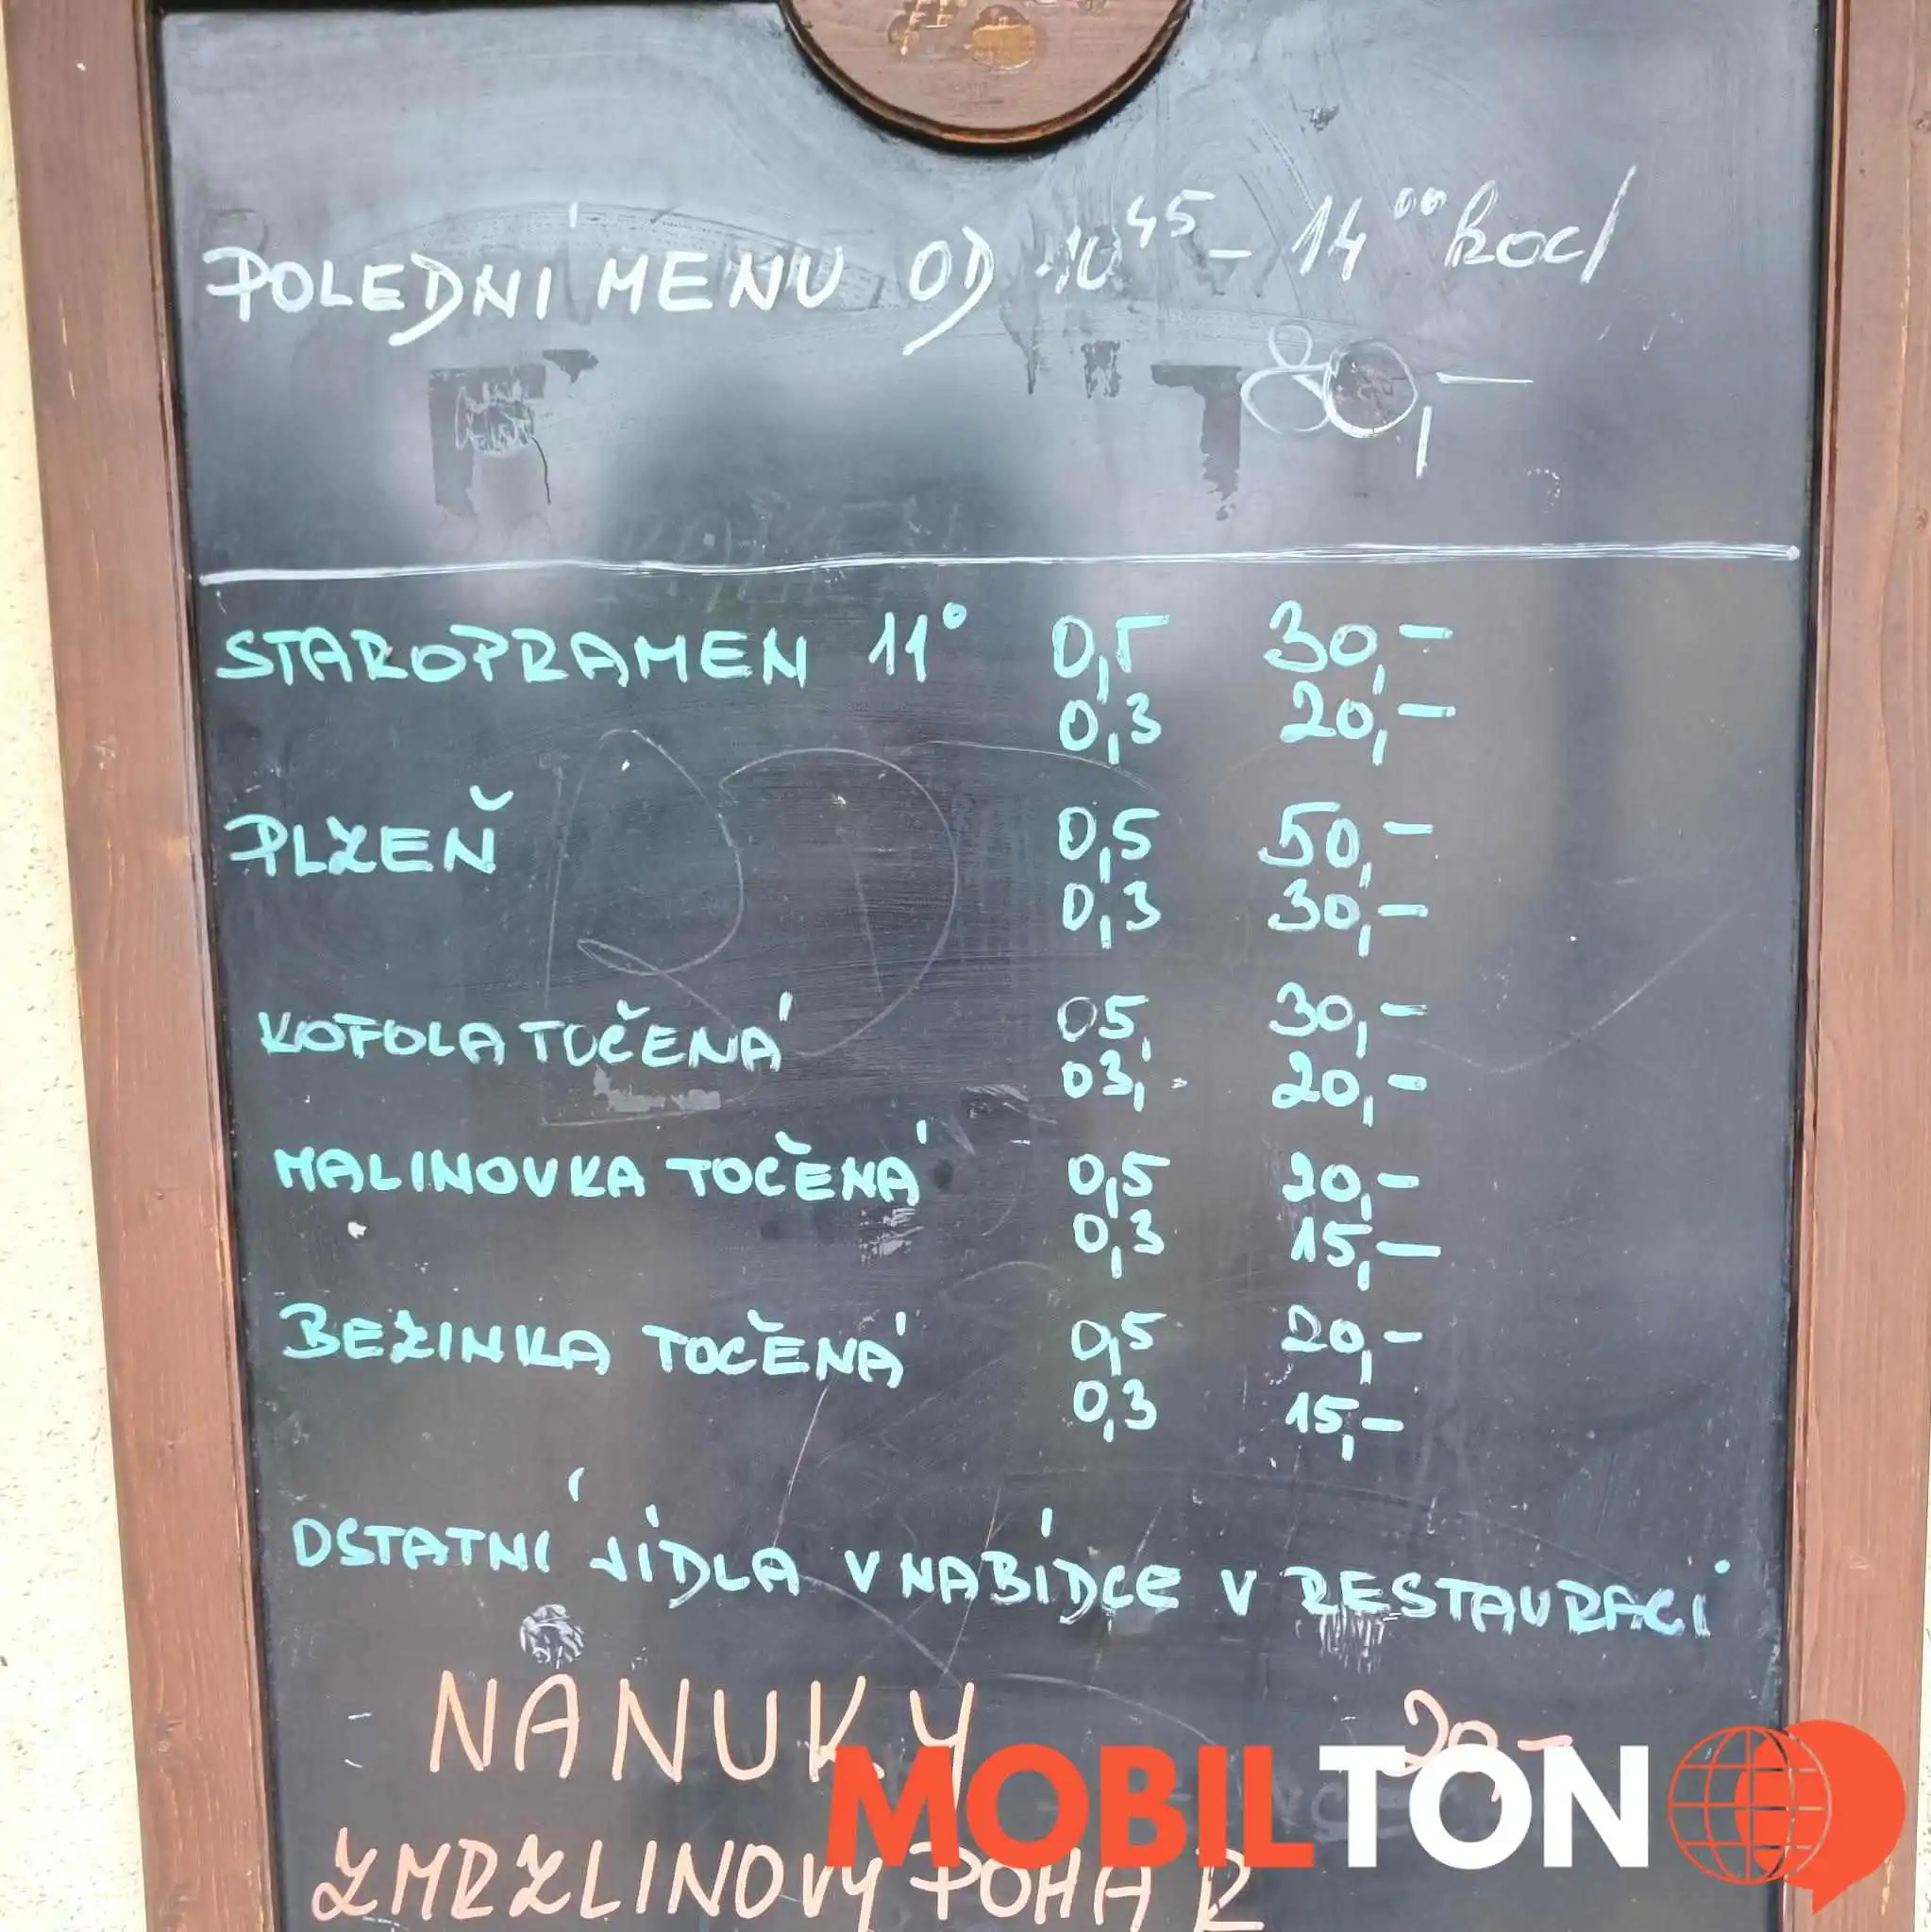 POLEDNÍ MENU OD 10⁴⁵ - 14⁰⁰ hod
80,-
STAROPRAMEN 11° 0,5 30,-
0,3 20,-
PLZEŇ 0,5 50,-
0,3 30,-
KOFOLA TOČENÁ 05, 30,-
03, 20,-
MALINOVKA TOČENÁ 0,5 20,-
0,3 15,-
BEZINKA TOČENÁ 0,5 20,-
0,3 15,-
OSTATNÍ JÍDLA V NABÍDCE V RESTAURACI
NANUKY
MOBILTON
ZMRZLINOVÝ POHÁR